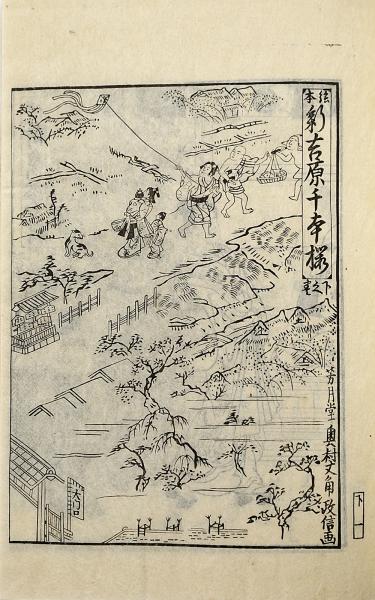 絵本
新吉原千本桜
下之巻
芳月堂奥村文角政信画
大門口
下一